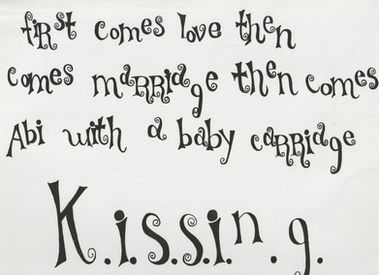 first comes love then
comes marriage then comes
Abi with a baby carriage
K.i.s.s.i.n.g.